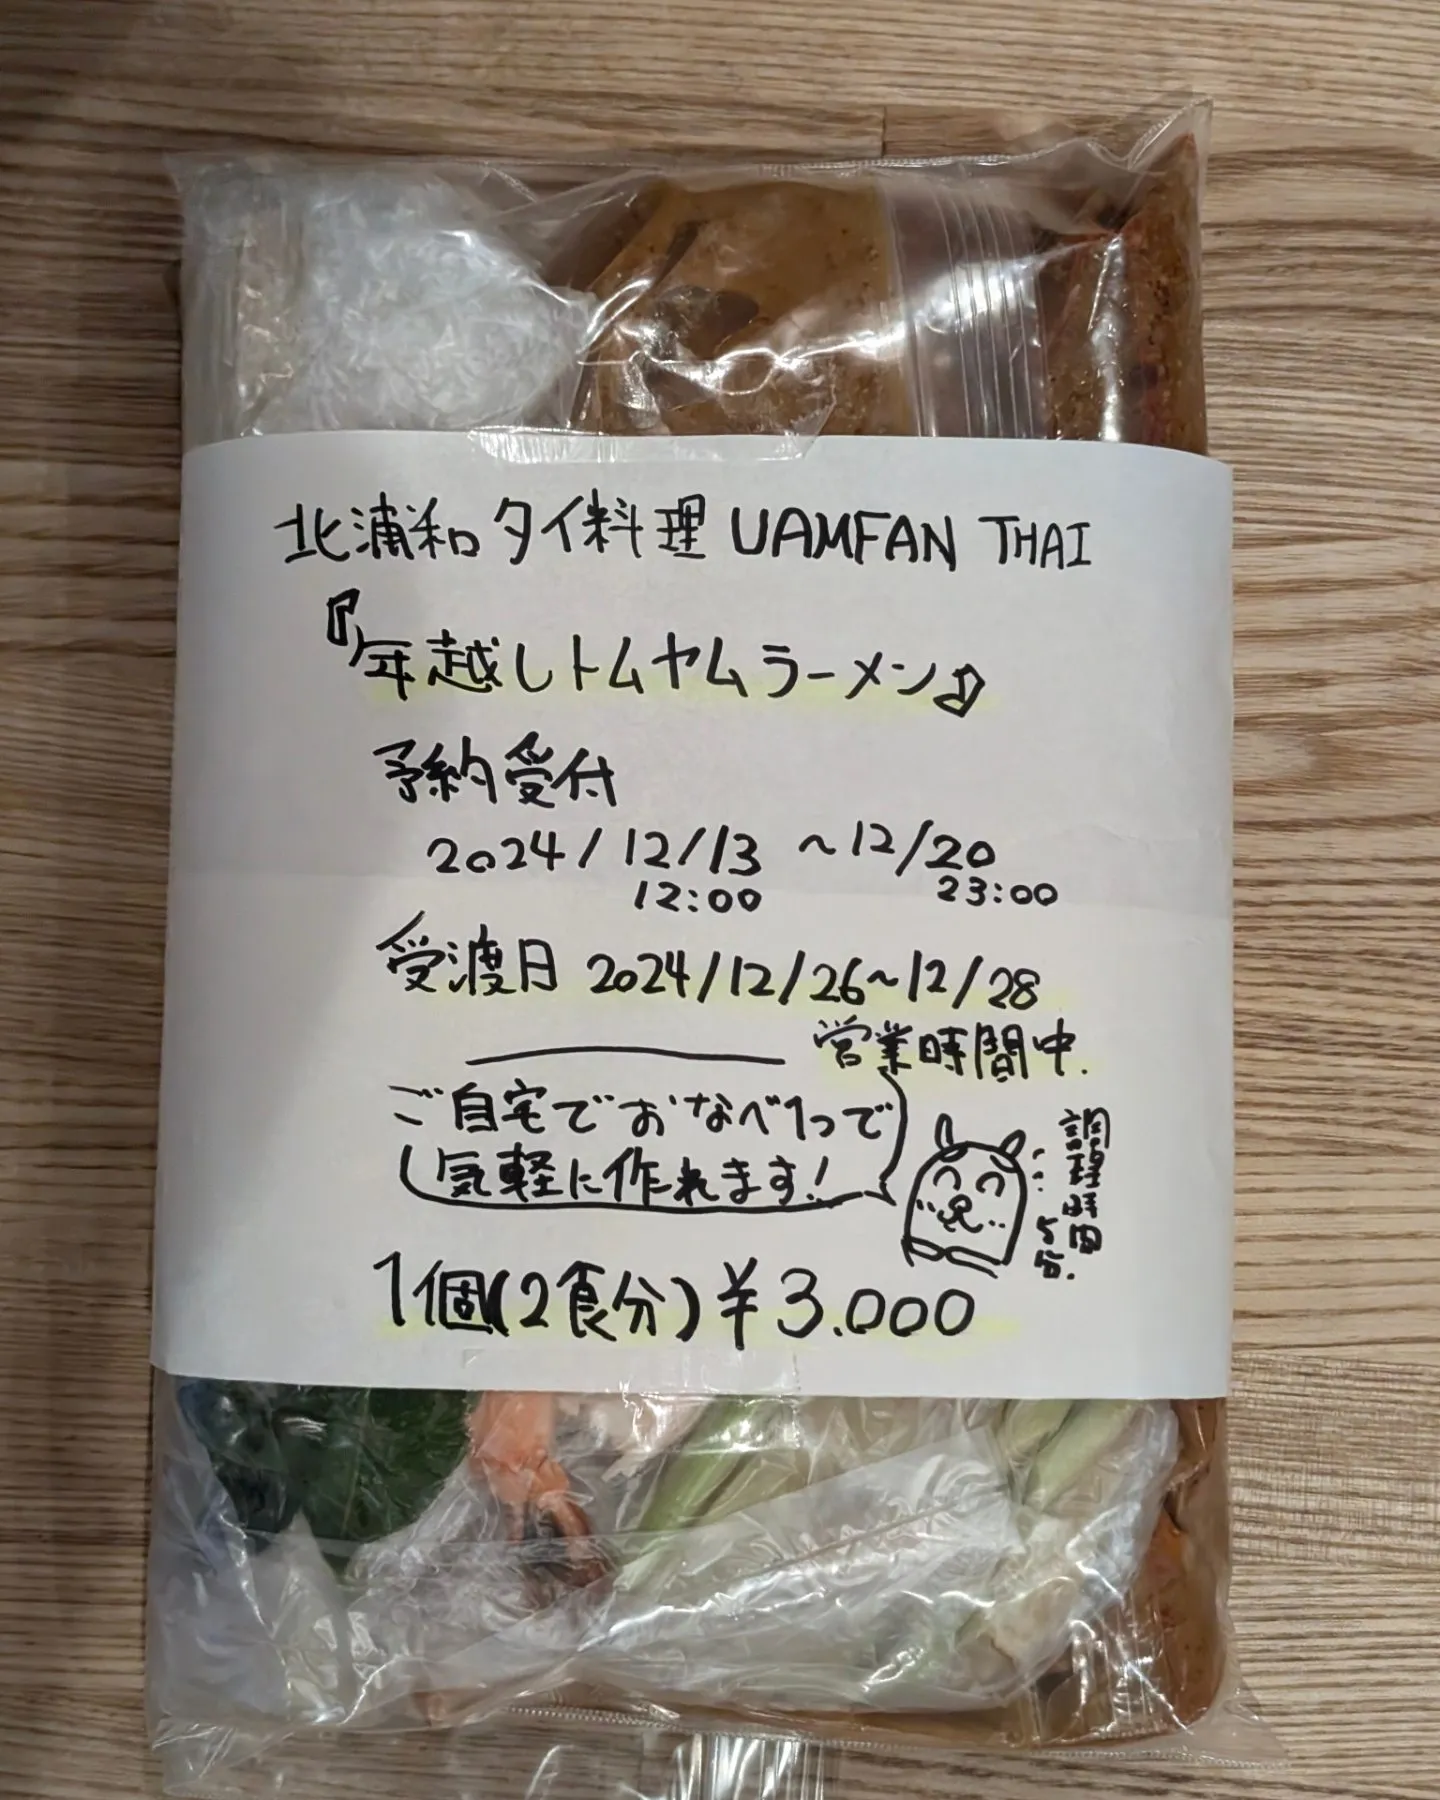 北浦和 タイ料理 UAMFAN THAI
『年越しトムヤムラーメン』
予約受付
2024/12/13 ~12/20
12:00 23:00
受渡日 2024/12/26~12/28
営業時間中.
ご自宅でおなべ1つで
気軽に作れます!
調理時間
5分.
1個(2食分)¥3.000